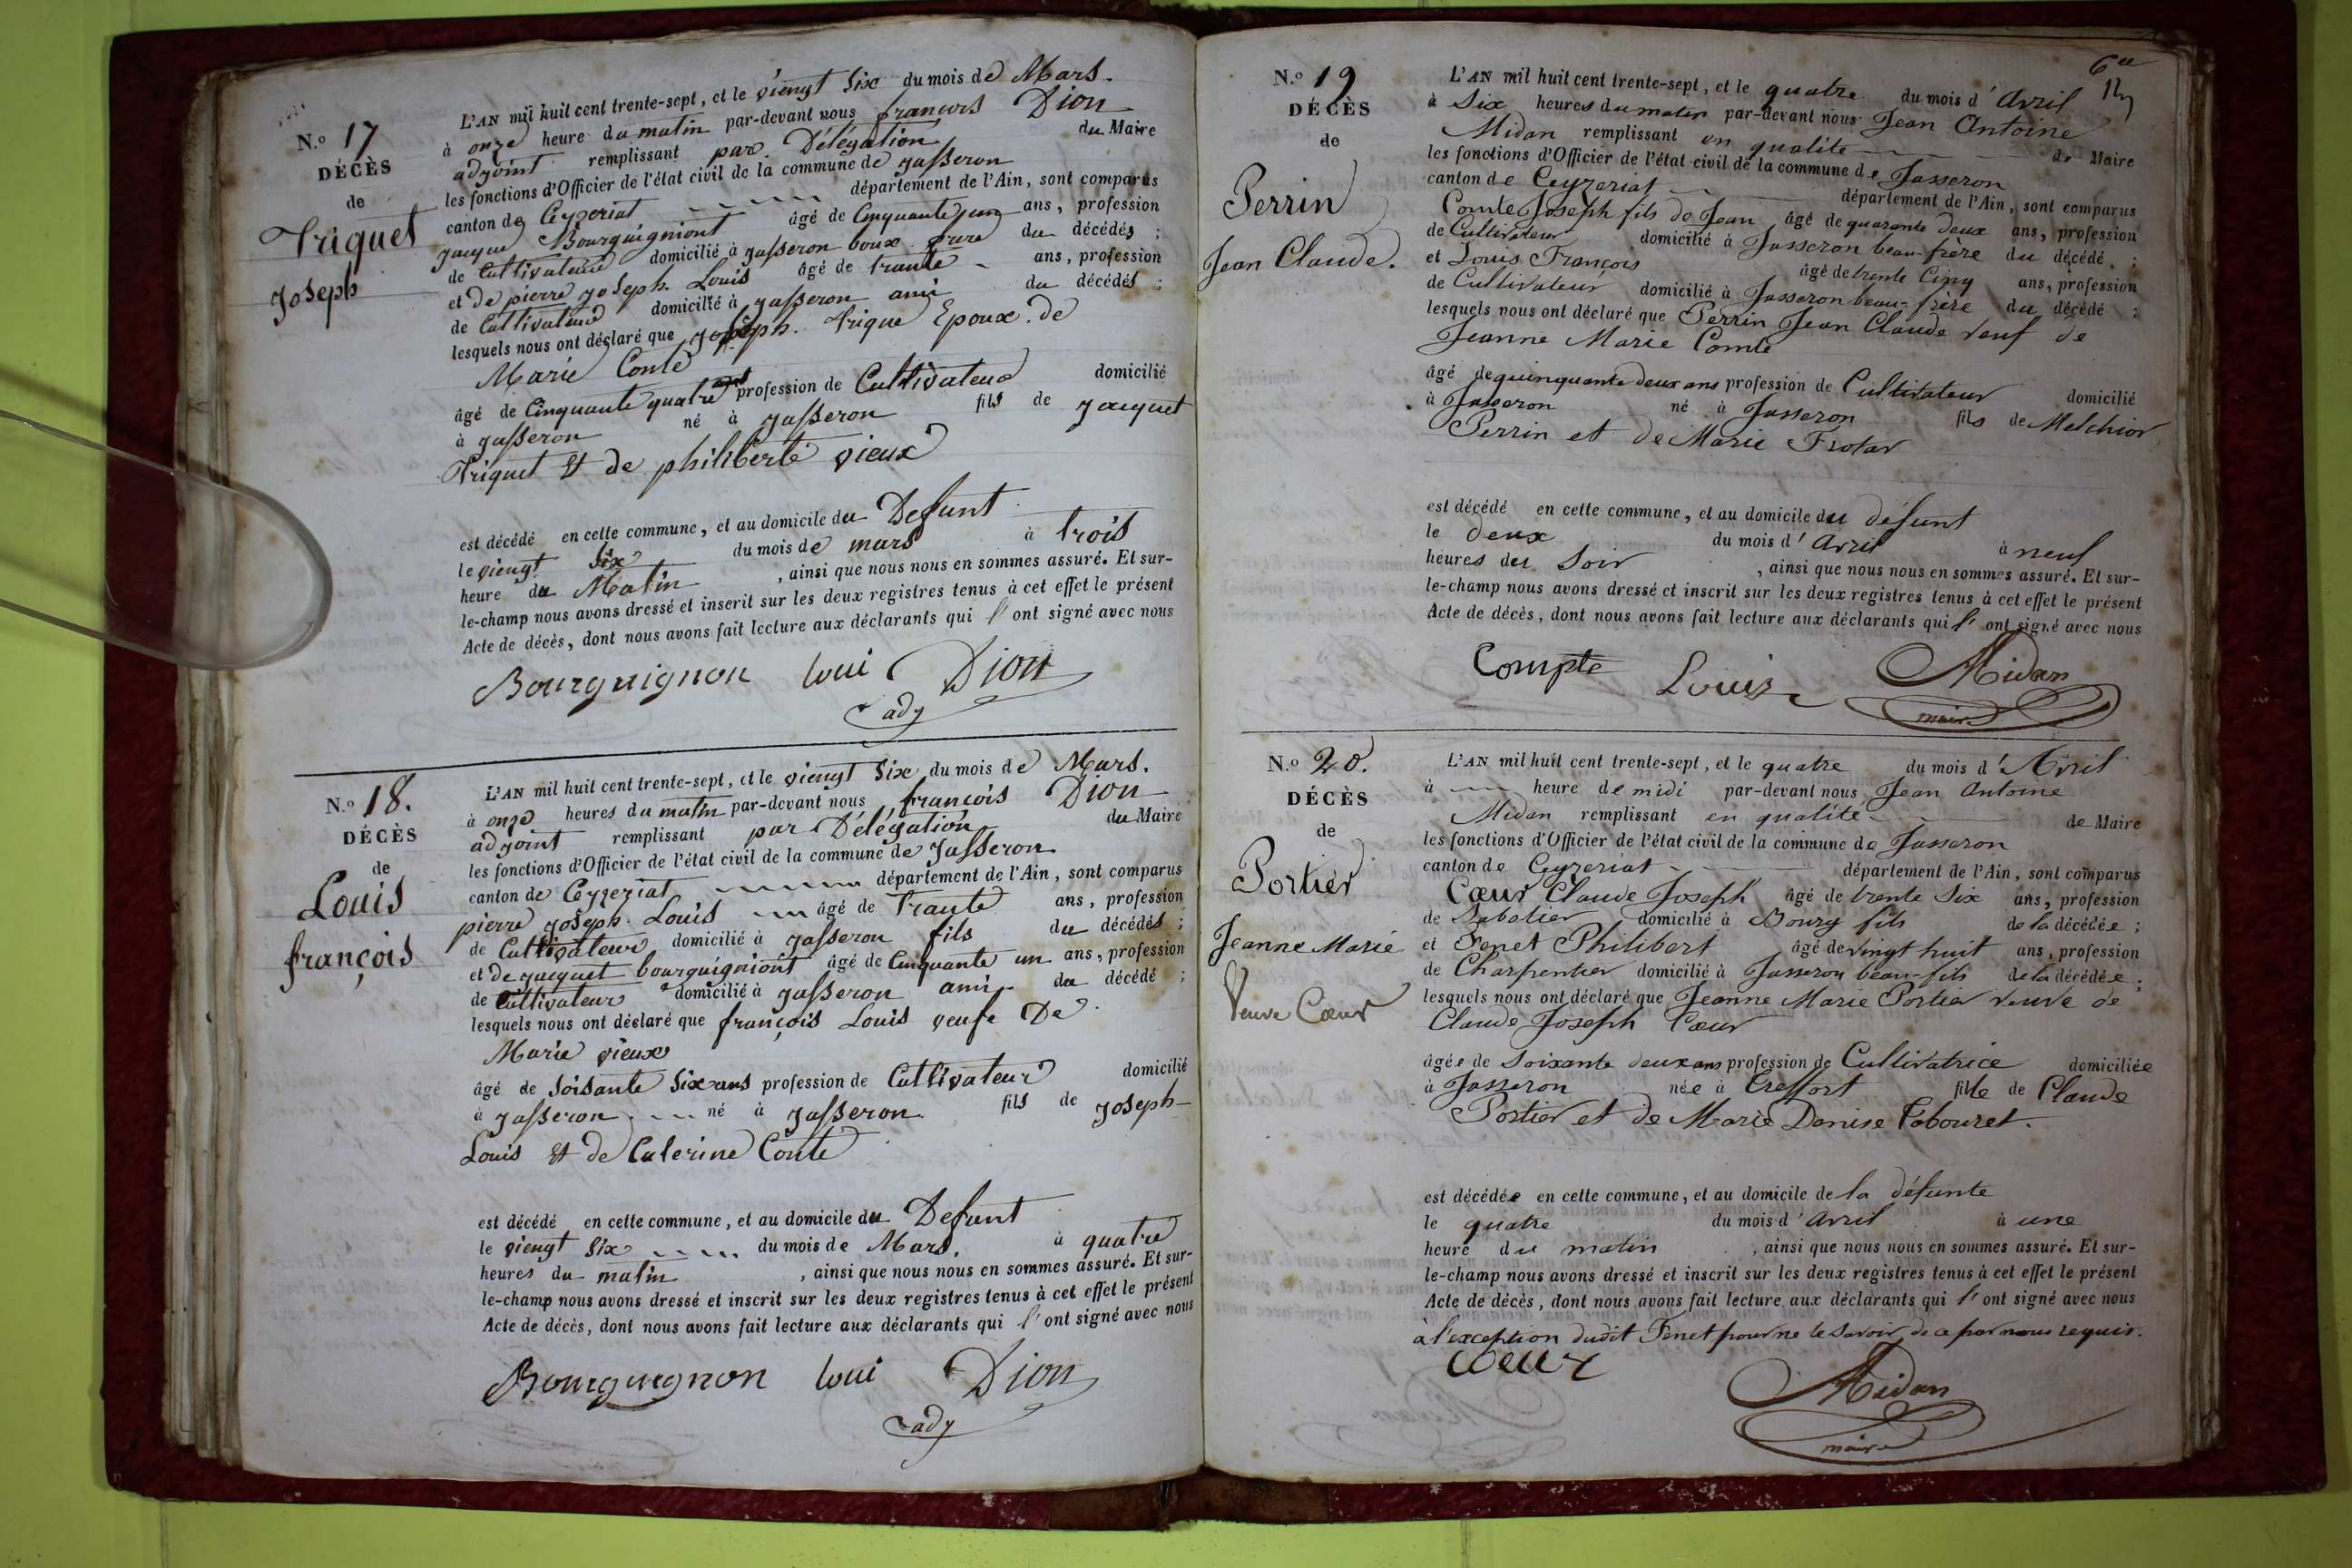 N.º 17
DÉCÈS
de
Triquet
joseph
L'AN mil huit cent trente-sept, et le viengt six du mois de Mars.
à onze heure du matin par-devant nous francois Dion
adjoint remplissant par Délégation du Maire
les fonctions d'Officier de l'état civil de la commune de jasseron
canton de Ceyzeriat département de l'Ain, sont comparus
jacque Bourguigniont âgé de Cinquante un ans, profession
de Cultivateur domicilié à jasseron boux frere du décédés ;
et de pierre joseph Louis âgé de trante ans, profession
de Cultivateur domicilié à jasseron ami du décédés ;
lesquels nous ont déclaré que joseph Trique Epoux de
Marie Conte
âgé de Cinquante quatre ans profession de Cultivateur domicilié
à jasseron né à jasseron fils de jacquet
Triquet Et de philiberte vieux
est décédé en cette commune, et au domicile du Defunt
le viengt six du mois de mars à trois
heure du Matin , ainsi que nous nous en sommes assuré. Et sur-
le-champ nous avons dressé et inscrit sur les deux registres tenus à cet effet le présent
Acte de décès, dont nous avons fait lecture aux déclarants qui l'ont signé avec nous
Bourguignon loui Dion
adj
N.º 18.
DÉCÈS
de
Louis
françois
L'AN mil huit cent trente-sept, et le viengt six du mois de Mars.
à onze heures du matin par-devant nous françois Dion
adjoint remplissant par Délégation du Maire
les fonctions d'Officier de l'état civil de la commune de jasseron
canton de Ceyzeriat département de l'Ain, sont comparus
pierre joseph Louis âgé de Trante ans, profession
de Cultivateur domicilié à jasseron fils du décédés ;
et de jacquet bourguigniont âgé de Cinquante un ans, profession
de Cultivateur domicilié à jasseron ami du décédé ;
lesquels nous ont déclaré que françois Louis veufe De
Marie vieux
âgé de soisante six ans profession de Cultivateur domicilié
à jasseron né à jasseron fils de joseph
Louis Et de Caterine Conte
est décédé en cette commune, et au domicile du Defunt
le viengt six du mois de Mars. à quatre
heures du matin , ainsi que nous nous en sommes assuré. Et sur-
le-champ nous avons dressé et inscrit sur les deux registres tenus à cet effet le présent
Acte de décès, dont nous avons fait lecture aux déclarants qui l'ont signé avec nous
Bourguignon loui Dion
adj
N.º 19
DÉCÈS
de
Perrin
Jean Claude.
L'AN mil huit cent trente-sept, et le quatre du mois d'Avril
à six heures du matin par-devant nous Jean Antoine
Midan remplissant en qualité de Maire
les fonctions d'Officier de l'état civil de la commune de Jasseron
canton de Ceyzeriat département de l'Ain, sont comparus
Comte Joseph fils de Jean âgé de quarante deux ans, profession
de Cultivateur domicilié à Jasseron beau-frère du décédé ;
et Louis François âgé de trente Cinq ans, profession
de Cultivateur domicilié à Jasseron beau-frère du décédé ;
lesquels nous ont déclaré que Perrin Jean Claude veuf de
Jeanne Marie Comte
âgé de quinquante deux ans profession de Cultivateur domicilié
à Jasseron né à Jasseron fils de Melchior
Perrin et de Marie Frotar
est décédé en cette commune, et au domicile du défunt
le deux du mois d'Avril à neuf
heures du soir , ainsi que nous nous en sommes assuré. Et sur-
le-champ nous avons dressé et inscrit sur les deux registres tenus à cet effet le présent
Acte de décès, dont nous avons fait lecture aux déclarants qui l'ont signé avec nous
Compte Louis Midan
maire
N.º 20.
DÉCÈS
de
Portier
Jeanne Marie
Veuve Cœur
L'AN mil huit cent trente-sept, et le quatre du mois d'Avril
à heure de midi par-devant nous Jean Antoine
Midan remplissant en qualité de Maire
les fonctions d'Officier de l'état civil de la commune de Jasseron
canton de Ceyzeriat département de l'Ain, sont comparus
Cœur Claude Joseph âgé de trente six ans, profession
de Sabotier domicilié à Bourg fils de la décédée ;
et Fenet Philibert âgé de vingt huit ans, profession
de Charpentier domicilié à Jasseron beau-fils de la décédée ;
lesquels nous ont déclaré que Jeanne Marie Portier veuve de
Claude Joseph Cœur
âgée de soixante deux ans profession de Cultivatrice domiciliée
à Jasseron née à Treffort fille de Claude
Portier et de Marie Denise Tabouret.
est décédée en cette commune, et au domicile de la défunte
le quatre du mois d'Avril à une
heure du matin , ainsi que nous nous en sommes assuré. Et sur-
le-champ nous avons dressé et inscrit sur les deux registres tenus à cet effet le présent
Acte de décès, dont nous avons fait lecture aux déclarants qui l'ont signé avec nous
à l'exception dudit Fenet pour ne le savoir de ce par nous requis.
Cœur Midan
maire